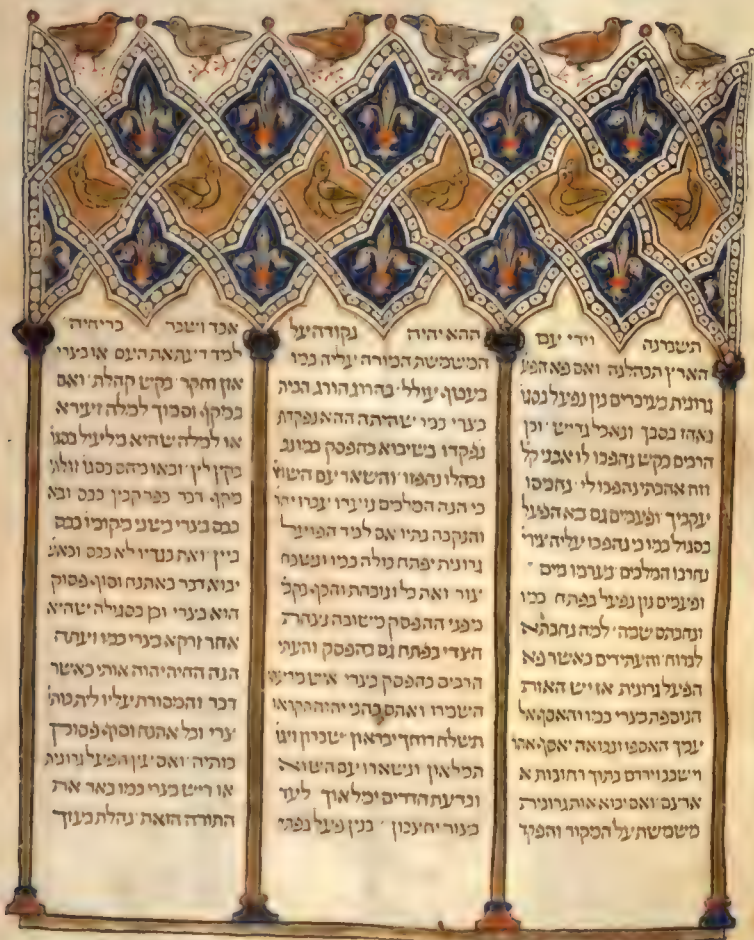 תשמדנה וידי עם
הארץ תבהלנה ואם פא הפעל
גרונית מעיברים נון נפעל בסגו
נאחז בסבך ונאכל גדיש וכן
הרבים כקש נהפכו לו אבני קל
וזה אהבתי נהפכו לי נחמסו
עקביך ופעמים גם בא הפעל
בסגול כמו כי נהפכו עליה צירי
נחרבו המלכים נערמו מים
ופעמים נון נפעל בפתח כמו
ונחבתם שמה למה נחבאת
למוח והעתידים כאשר פא
הפעל גרונית אז יש האות
הנוספת בצרי כמו והאסף אל
עמך האספו ונבואה יאסף אהר
וישבנו וירדם בתוך רחובות א
אדעם ואם יבוא אות גרונית
משמשת על המקור והפקד
ההא יהיה נקודה על
המשמשת המורה עליה כמו
בעטף עולל בהרוג הורג הבית
בצרי כמו שהיתה ההא נפקדת
נפקדו בשיבוא בהפסק כמו נג
נבהלו נחפזו והשאר עם השוא
כי הנה המלכים נועדו עברו יחד
והנקבה נתיו אם למד הפועל
גרונית יפתח כולה כמו ונשכח
עור ואת כל ונוכחת והכף נקל
מפני ההפסק מישובה נעדרת
חצדי בפתח גם בהפסק והעתי
הרבים בהפסק בצרי איש מרעהו
השמרו ואתם כהני יהיה תקראו
תשלח רוחך יבראון ישכיון ויגו
תמלאון ונשארו עם השוא
ונדעת הדדים ימלאון לעד
בעור יחיכון בנין פיעל נפתי
אבד ושבר בריחיה
למד דעת את העם או בצרי
אזן וחקר בקש קהלת ואם
במקף וסמוך למלה זעירא
או למלה שהיא מלעיל בסגו
בקץ לין ובאו מהם בסגו זולתי
מקף דבר כפר קבין כבס ובא
כבס בצרי בשני מקומו כבס
ביין ואת בגדיו לא כבס וכאש
יבוא דבר באתנח וסוף פסוק
הוא בצרי וכן בסגולה שהיא
אחר זרקא בצרי כמו ועתה
הנה החיה יהוה אותי כאשר
דבר והמסורת עליו ליתמה
צרי וכל אתנח וסוף פסוק ך
כותיה ואם עין הפעל גרונית
או ריש בצרי כמו באר את
התורה הזאת נהלת בעזך